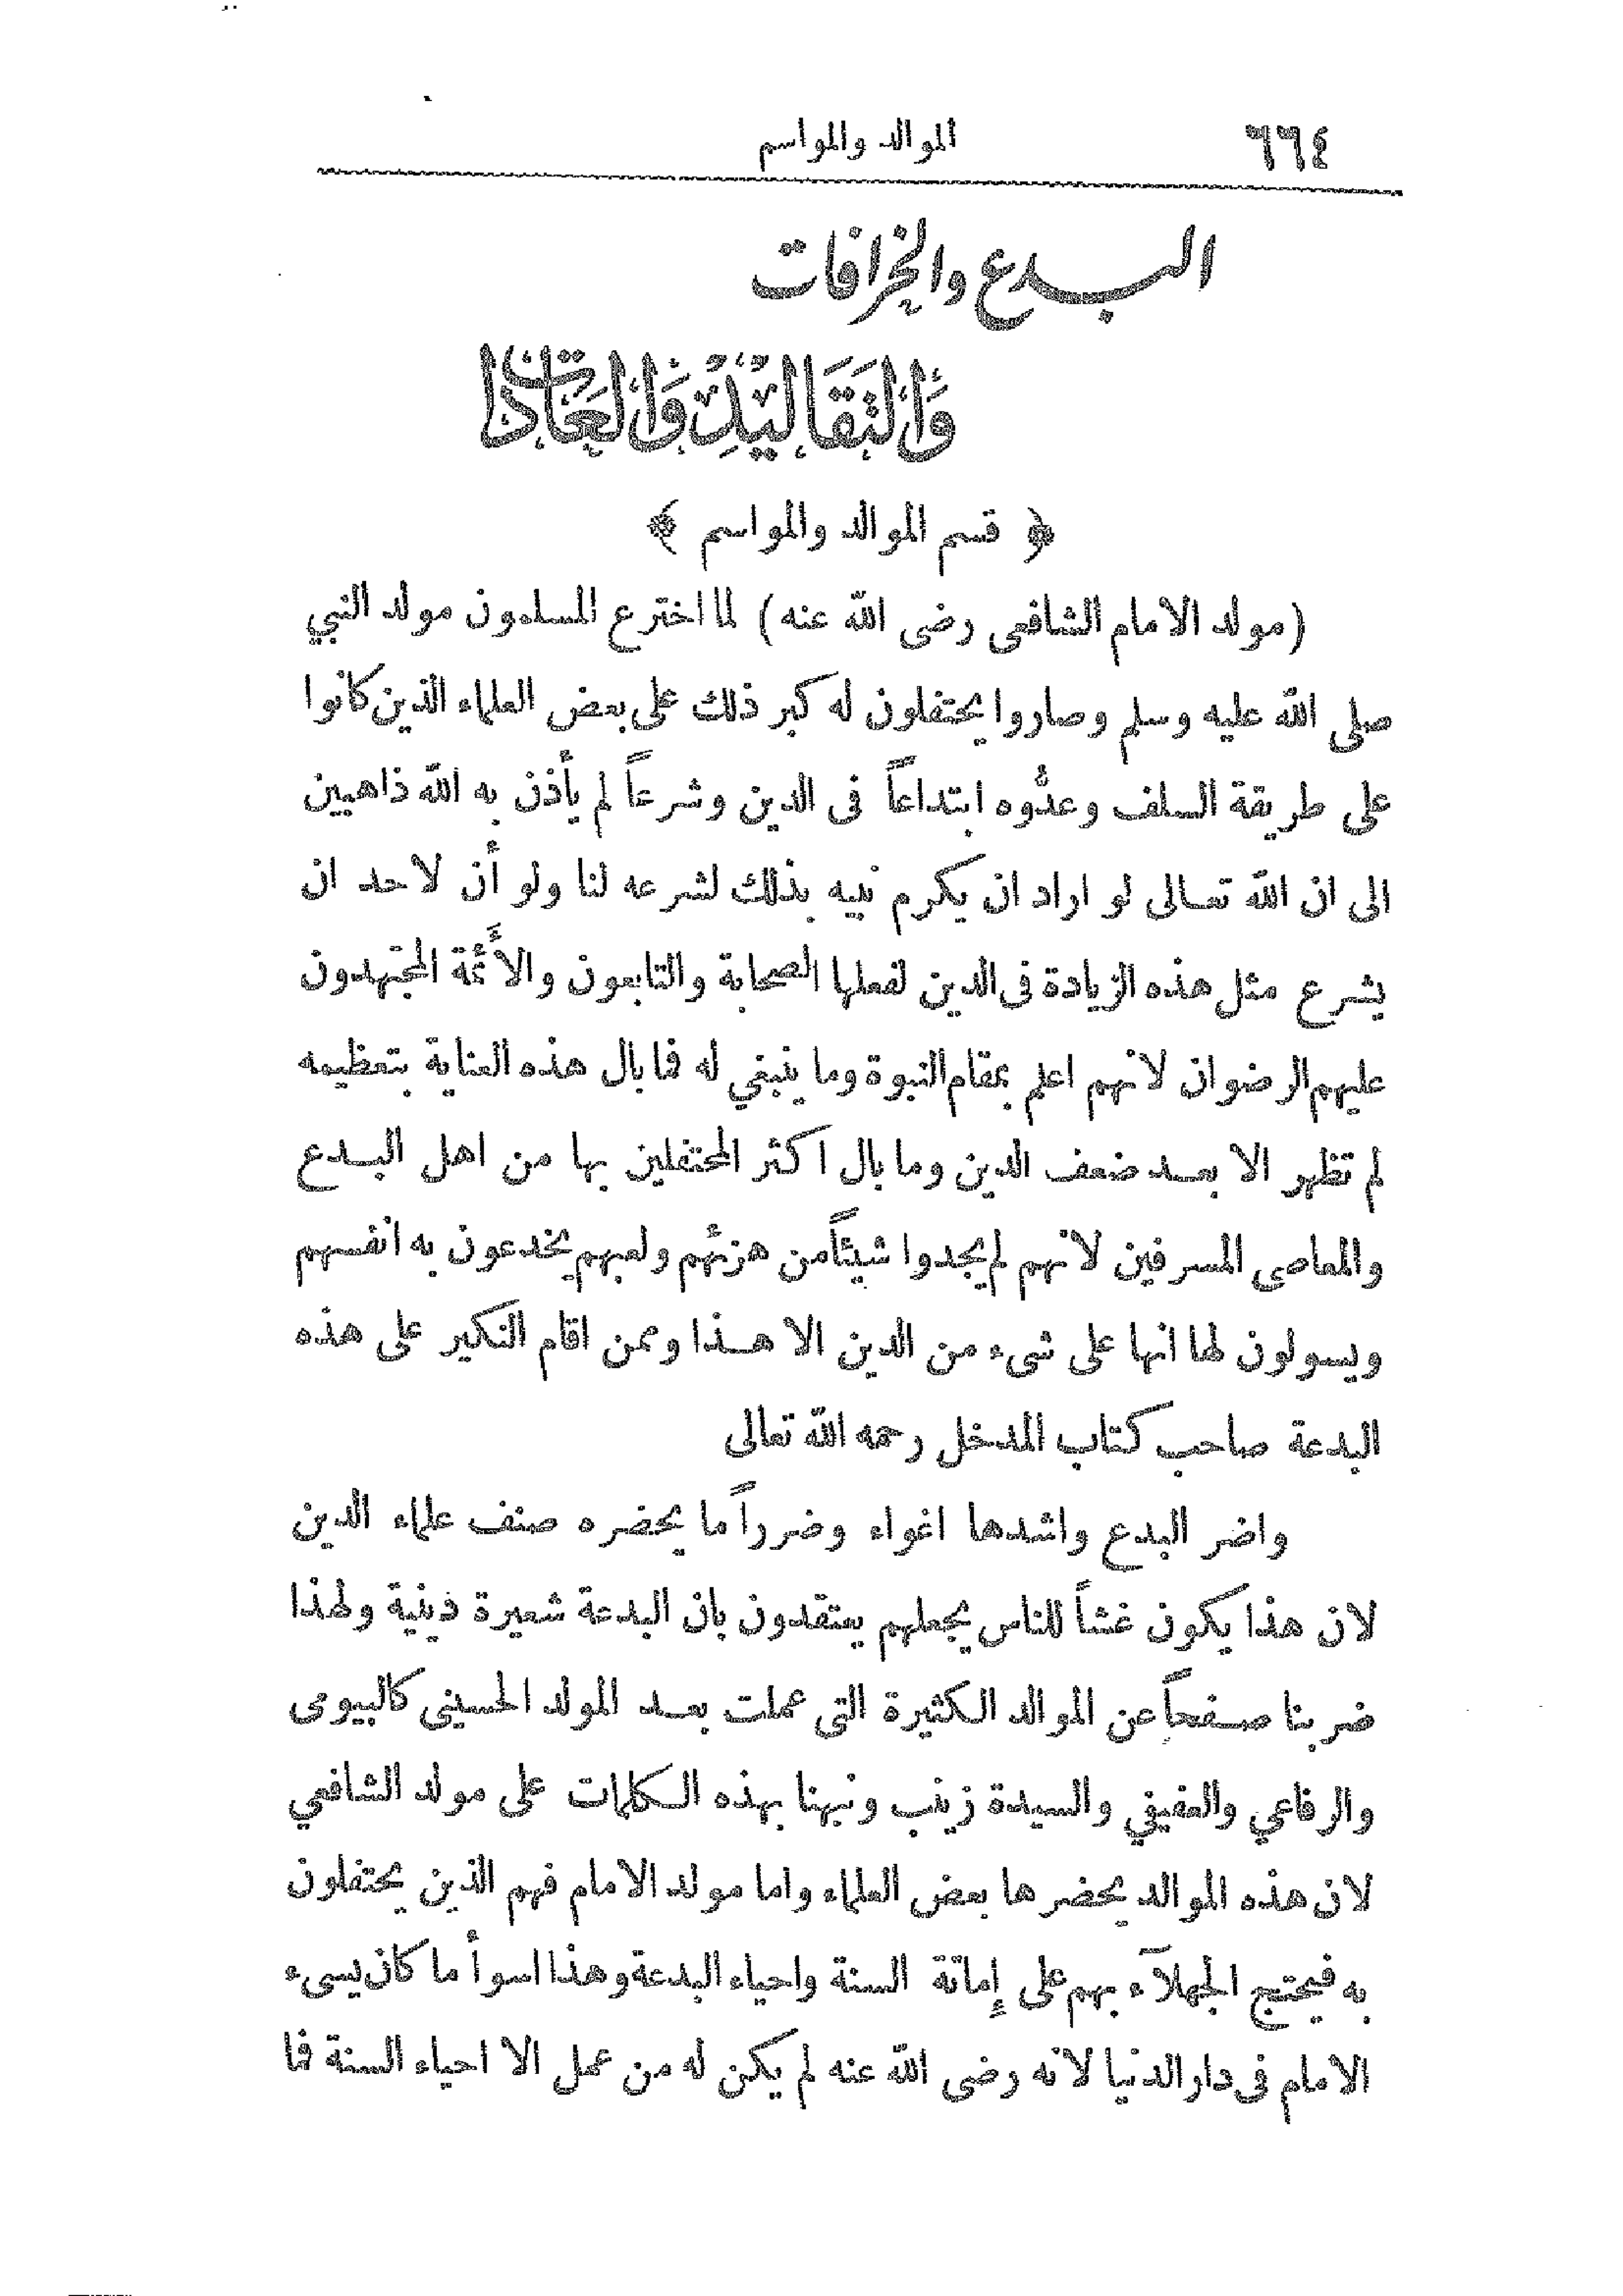 ٦٦٤ الموالد والمواسم
البـدع والخرافات
وَالتَقَالِيْدُ وَالعَادَاتُ
﴿ قسم الموالد والمواسم ﴾
(مولد الامام الشافعى رضى الله عنه) لما اخترع المسلمون مولد النبي
صلى الله عليه وسلم وصاروا يحتفلون له كبر ذلك على بعض العلماء الذين كانوا
على طريقة السلف وعدُّوه ابتداعاً فى الدين وشرعاً لم يأذن به الله ذاهبين
الى ان الله تعـالى لو اراد ان يكرم نبيه بذلك لشرعه لنا ولو أن لاحد ان
يشرع مثل هذه الزيادة فى الدين لفعلها الصحابة والتابعون والأَئمة المجتهدون
عليهم الرضوان لانهم اعلم بمقام النبوة وما ينبغي له فما بال هذه العناية بتعظيمه
لم تظهر الا بعـد ضعف الدين وما بال اكثر المحتفلين بها من اهل البـدع
والمعاصى المسرفين لانهم لم يجدوا شيئاً من هزئهم ولعبهم يخدعون به انفسهم
ويسولون لها انها على شىء من الدين الا هـذا وممن اقام النكير على هذه
البدعة صاحب كتاب المدخل رحمه الله تعالى
واضر البدع واشدها اغواء وضرراً ما يحضره صنف علماء الدين
لان هذا يكون غشاً للناس يجعلهم يعتقدون بان البدعة شعيرة دينية ولهذا
ضربنا صـفحاً عن الموالد الـكثيرة التى عملت بعـد المولد الحسيني كالبيومى
والرفاعي والعفيفي والسيدة زينب ونبهنا بهذه الـكلمات على مولد الشافعي
لان هذه الموالد يحضرها بعض العلماء واما مولد الامام فهم الذين يحتفلون
به فيحتج الجهلآء بهم على إماتة السنة واحياء البدعة وهذا اسوأ ما كان يسىء
الامام فى دار الدنيا لانه رضى الله عنه لم يكن له من عمل الا احياء السنة فما